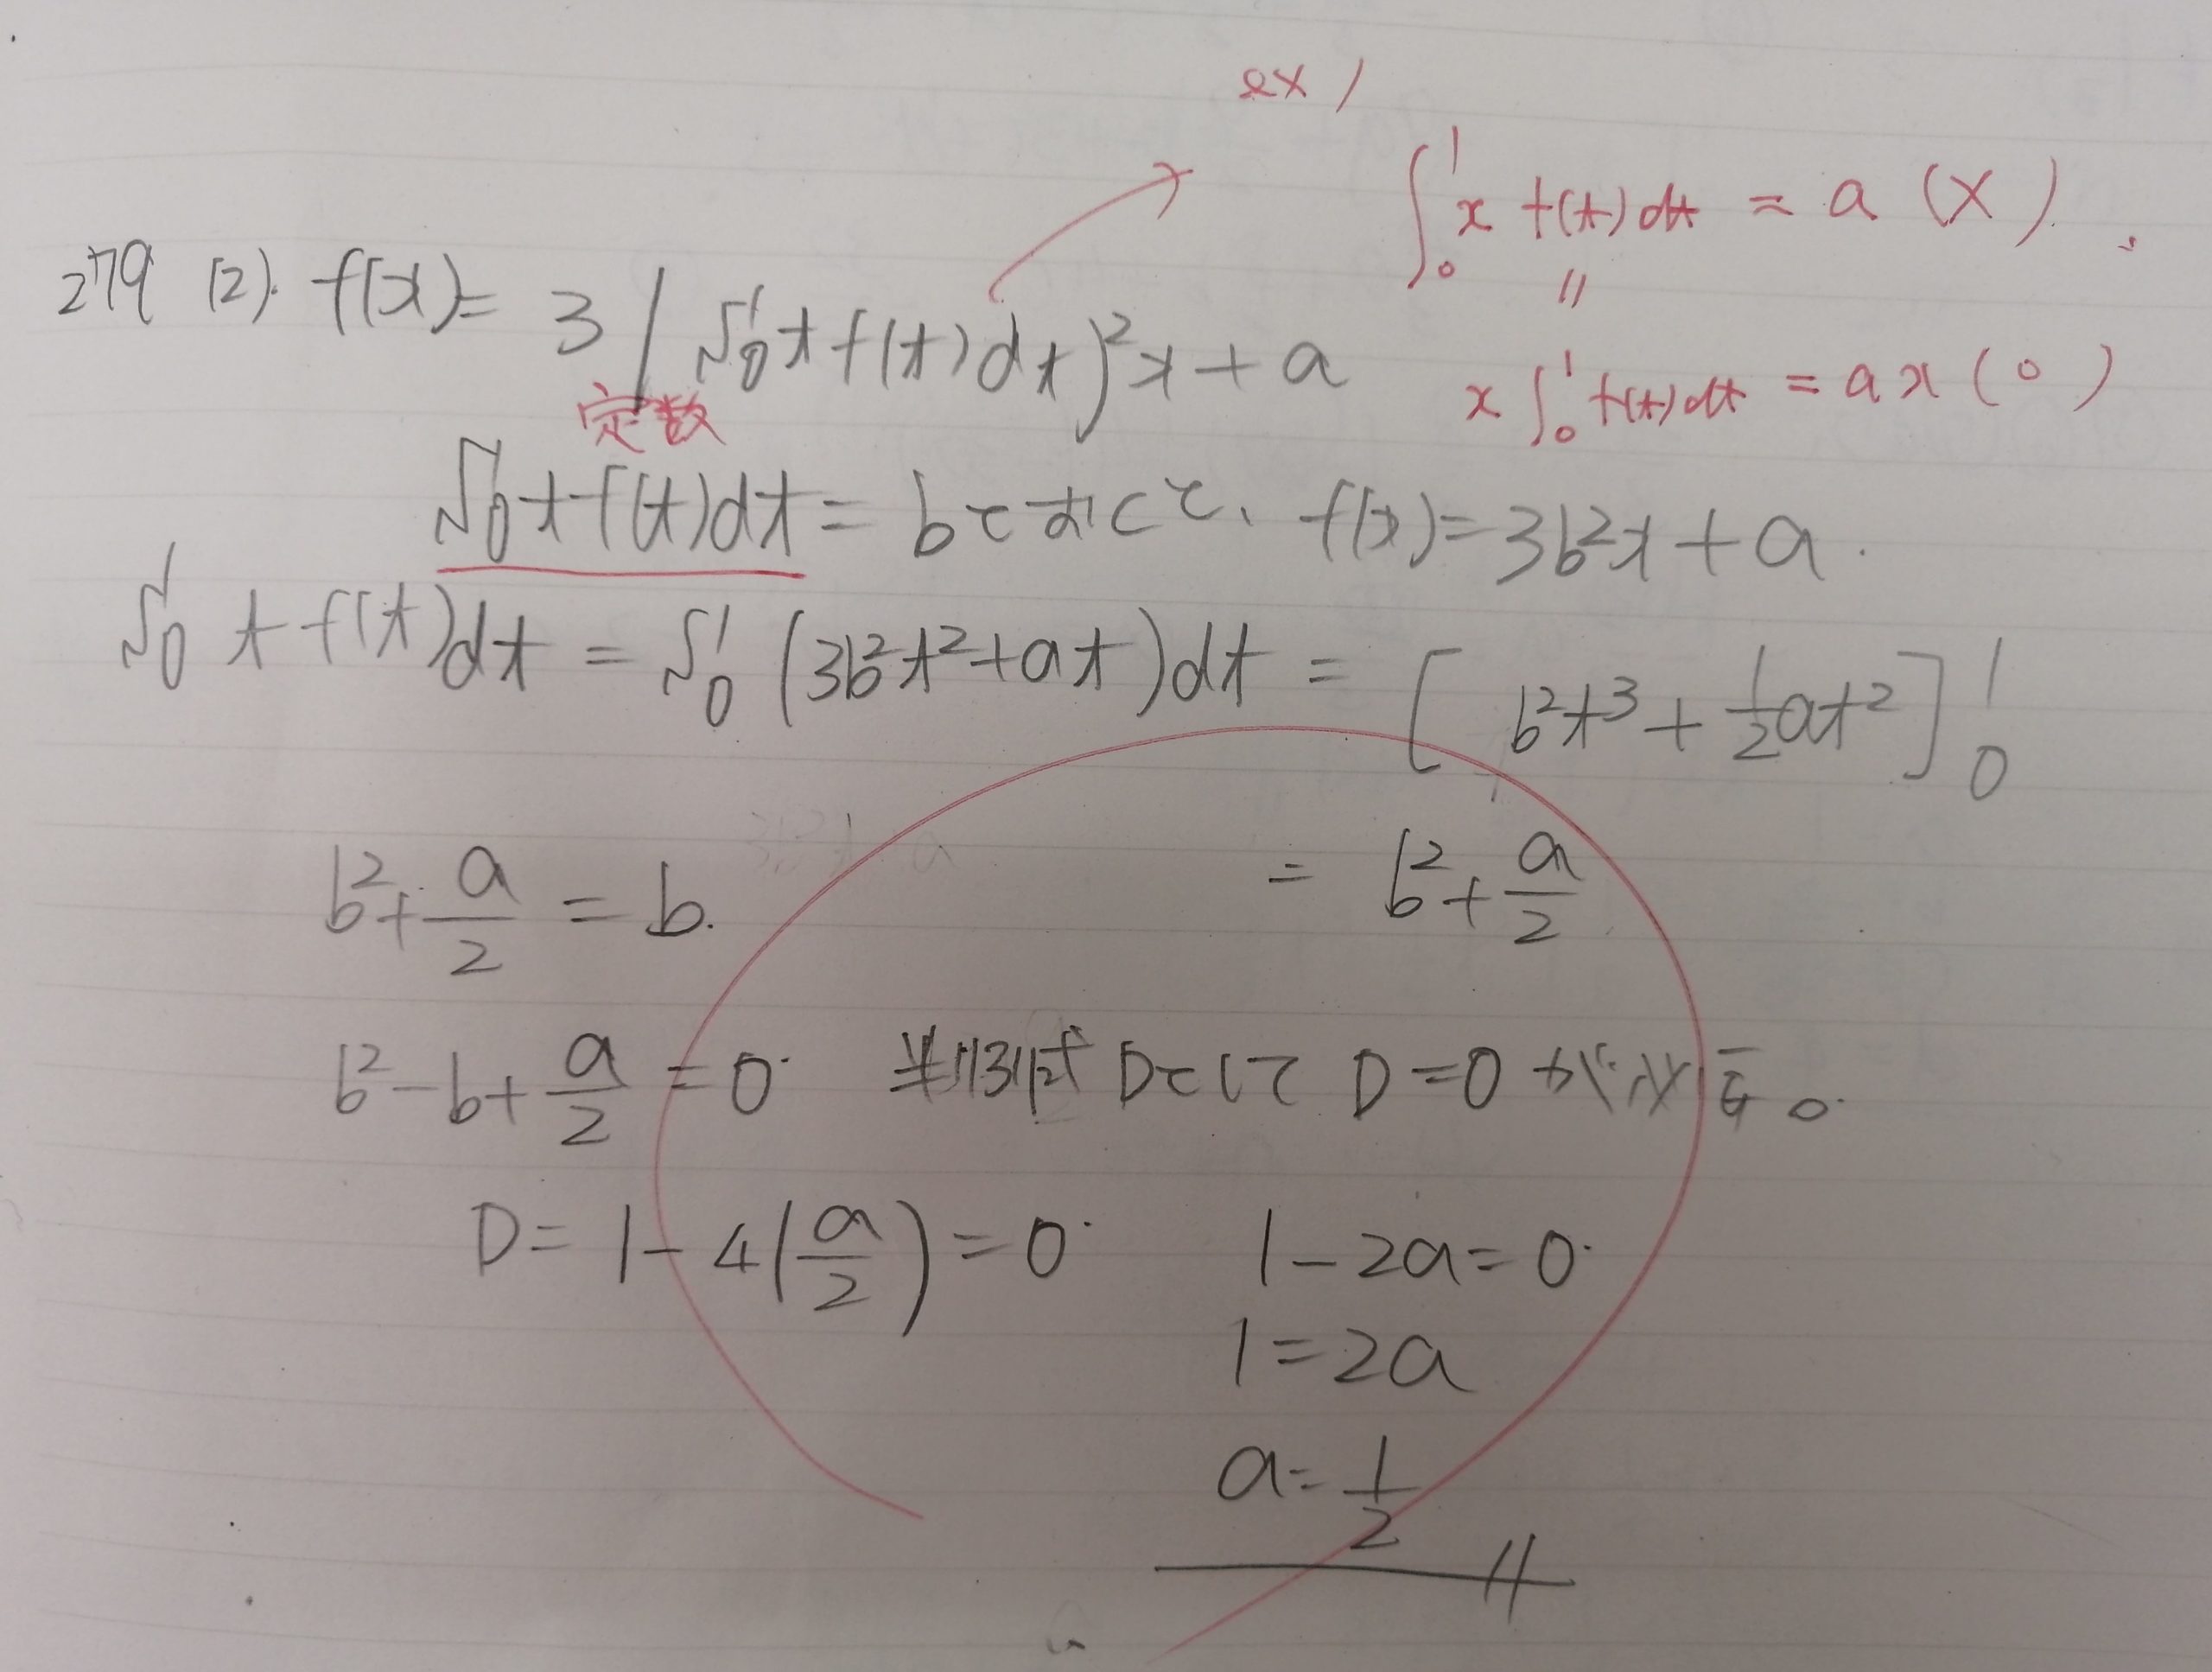 ex)
∫₀¹ x f(t)dt = a (×).
〃
x∫₀¹ f(t)dt = ax (○)
279 (2). f(x) = 3(∫₀¹ t f(t)dt)²x + a
定数
∫₀¹ t f(t)dt = bとおくと、f(x) = 3b²x + a.
∫₀¹ t f(t)dt = ∫₀¹ (3b²t² + at)dt = [b²t³ + 1/2 at²]₀¹
= b² + a/2
b² + a/2 = b.
b² - b + a/2 = 0. 判別式 DとしてD = 0
D = 1 - 4(a/2) = 0. 1 - 2a = 0.
1 = 2a
a = 1/2